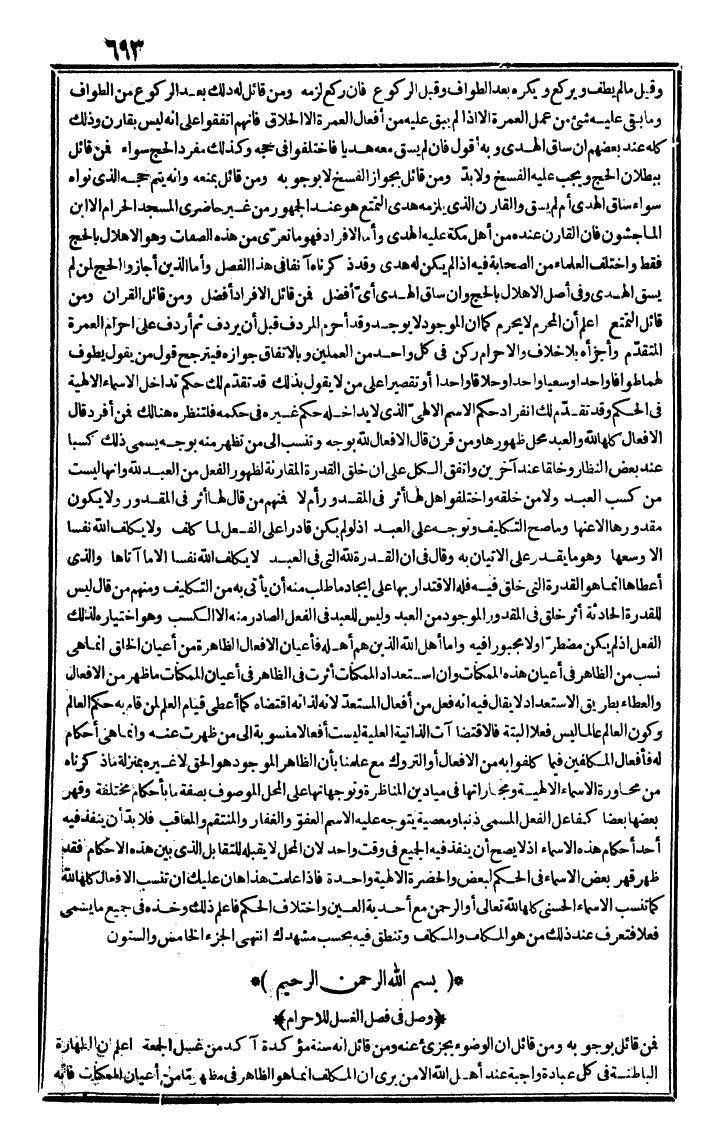 ٦٩٣
وقبل مالم يطف ويركع ويكره بعد الطواف وقبل الركوع فان ركع لزمه ومن قائل له ذلك بعد الركوع من الطواف
وما بقى عليه شئ من عمل العمرة الا اذا لم يبق عليه من أفعال العمرة الا الحلاق فانهم اتفقوا على انه ليس بقارن وذلك
كله عند بعضهم ان ساق الهدى وبه أقول فان لم يسق معه هديا فاختلفوا فى حجه وكذلك مفرد الحج سواء فمن قائل
ببطلان الحج ويجب عليه الفسخ ولا بد ومن قائل بجواز الفسخ لا بوجوبه ومن قائل بمنعه وانه يتم حجه الذى نواه
سواء ساق الهدى أم لم يسق والقارن الذى يلزمه هدى التمتع هو عند الجمهور من غير حاضرى المسجد الحرام الا ابن
الماجشون فان القارن عنده من أهل مكة عليه الهدى وأما الافراد فهو ما تعرّى من هذه الصفات وهو الاهلال بالحج
فقط واختلف العلماء من الصحابة فيه اذا لم يكن له هدى وقد ذكرناه آنفا فى هذا الفصل وأما الذين أجازوا الحج لمن لم
يسق الهدى وفى أصل الاهلال بالحج وان ساق الهدى أىّ أفضل فمن قائل الافراد أفضل ومن قائل القران ومن
قائل التمتع اعلم أن المحرم لا يحرم كما ان الموجود لا يوجد وقد أحرم المردف قبل أن يردف ثم أردف على احرام العمرة
المتقدّم وأجزأه بلا خلاف والاحرام ركن فى كل واحد من العملين وبالاتفاق جوازه فيترجح قول من يقول يطوف
لهما طوافا واحدا وسعيا واحدا وحلاقا واحدا أو تقصيرا على من لا يقول بذلك قد تقدّم لك حكم تداخل الاسماء الالهية
فى الحكم وقد تقدّم لك انفراد حكم الاسم الالهىّ الذى لا يداخله حكم غيره فى حكمه فلتنظره هنالك فمن أفرد قال
الافعال كلها لله والعبد محل ظهورها ومن قرن قال الافعال لله بوجه وتنسب الى من تظهر منه بوجه يسمى ذلك كسبا
عند بعض النظار وخلقا عند آخرين واتفق الكل على ان خلق القدرة المقارنة لظهور الفعل من العبد لله وانها ليست
من كسب العبد ولا من خلقه واختلفوا هل لها أثر فى المقدور أم لا فمنهم من قال لها أثر فى المقدور ولا يكون
مقدورها الا عنها وما صح التكليف وتوجه على العبد اذ لو لم يكن قادرا على الفعل لما كلف ولا يكلف الله نفسا
الا وسعها وهو ما يقدر على الاتيان به وقال فى ان القدرة لله التى فى العبد لا يكلف الله نفسا الا ما آتاها والذى
أعطاها انما هو القدرة التى خلق فيه فله الاقتدار بها على ايجاد ما طلب منه أن يأتى به من التكليف ومنهم من قال ليس
للقدرة الحادثة أثر خلق فى المقدور الموجود من العبد وليس للعبد فى الفعل الصادر منه الا الكسب وهو اختياره لذلك
الفعل اذ لم يكن مضطرّا ولا مجبورا فيه واما أهل الله الذين هم أهله فأعيان الافعال الظاهرة من أعيان الخلق انما هى
نسب من الظاهر فى أعيان هذه الممكنات وان استعداد الممكنات أثرت فى الظاهر فى أعيان الممكنات ما ظهر من الافعال
والعطاء بطريق الاستعداد لا يقال فيه انه فعل من أفعال المستعدّ لانه لذاته اقتضاه كما أعطى قيام العلم لمن قام به حكم العالم
وكون العالم عالما ليس فعلا البتة فالاقتضاآت الذاتية العلية ليست أفعالا منسوبة الى من ظهرت عنه وانما هى أحكام
له فأفعال المكلفين فيما كلفوا به من الافعال أو التروك مع علمنا بأن الظاهر الموجود هو الحق لا غيره بمنزلة ما ذكرناه
من محاورة الاسماء الالهية ومجاراتها فى ميادين المناظرة وتوجهاتها على المحل الموصوف بصفة ما بأحكام مختلفة وقهر
بعضها بعضا كفاعل الفعل المسمى ذنبا ومعصية يتوجه عليه الاسم العفوّ والغفار والمنتقم والمعاقب فلا بدّ أن ينفذ فيه
أحد أحكام هذه الاسماء اذ لا يصح أن ينفذ فيه الجميع فى وقت واحد لان المحل لا يقبله للتقابل الذى بين هذه الاحكام فقد
ظهر قهر بعض الاسماء فى الحكم لبعض والحضرة الالهية واحدة فاذا علمت هذا هان عليك ان تنسب الافعال كلها لله
كما تنسب الاسماء الحسنى كلها لله تعالى أو الرحمن مع أحدية العين واختلاف الحكم فاعلم ذلك وخذه فى جميع ما يسمى
فعلا فتعرف عند ذلك من هو المكلف والمكلف وتنطق فيه بحسب مشهدك انتهى الجزء الخامس والستون
*( بسم الله الرحمن الرحيم )*
﴿وصل فى فصل الغسل للاحرام﴾
فمن قائل بوجوبه ومن قائل ان الوضوء يجزئ عنه ومن قائل انه سنة مؤكدة آكد من غسل الجمعة اعلم ان الطهارة
الباطنة فى كل عبادة واجبة عند أهل الله الا من يرى ان المكلف انما هو الظاهر فى مظهر مّا من أعيان الممكنات فانه